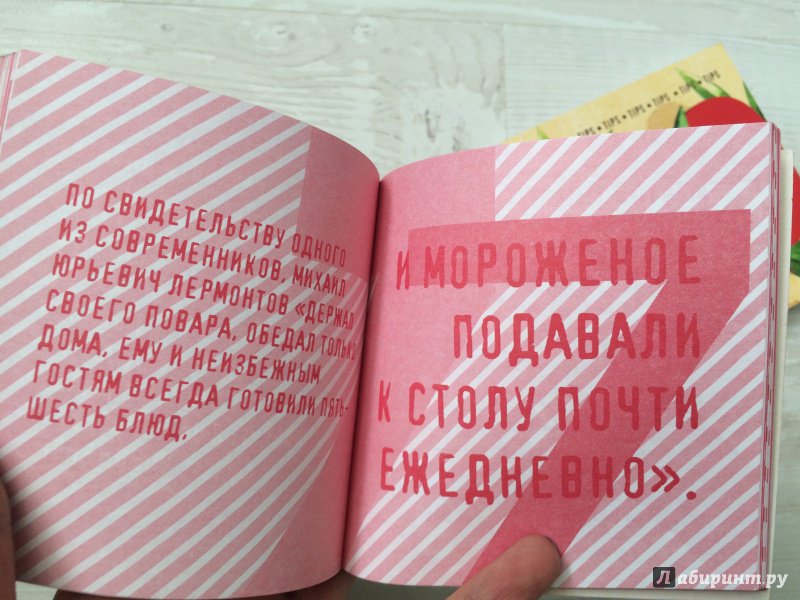 ПО СВИДЕТЕЛЬСТВУ ОДНОГО
ИЗ СОВРЕМЕННИКОВ, МИХАИЛ
ЮРЬЕВИЧ ЛЕРМОНТОВ «ДЕРЖАЛ
СВОЕГО ПОВАРА, ОБЕДАЛ ТОЛЬКО
ДОМА, ЕМУ И НЕИЗБЕЖНЫМ
ГОСТЯМ ВСЕГДА ГОТОВИЛИ ПЯТЬ-
ШЕСТЬ БЛЮД,
7
И МОРОЖЕНОЕ
ПОДАВАЛИ
К СТОЛУ ПОЧТИ
ЕЖЕДНЕВНО».
TIPS • TIPS • TIPS • TIPS • TIPS
Лабиринт.ру